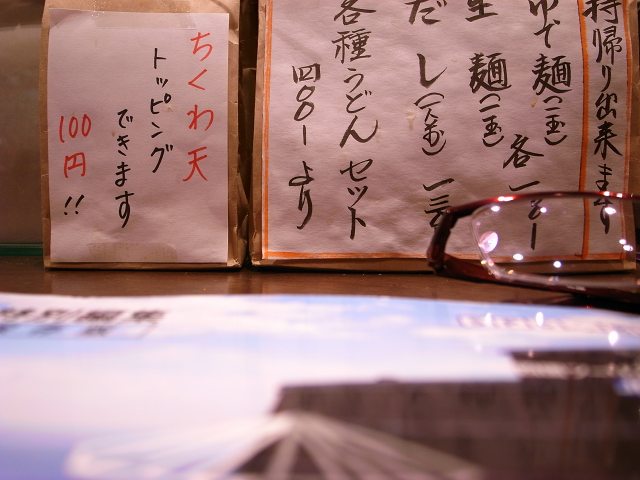 持帰り出来ます
ゆで麺(一玉)
生麺(一玉)
各一
だし(一人前)
一三
各種うどんセット
四〇〇ー より
ちくわ天
トッピング
できます
100円!!